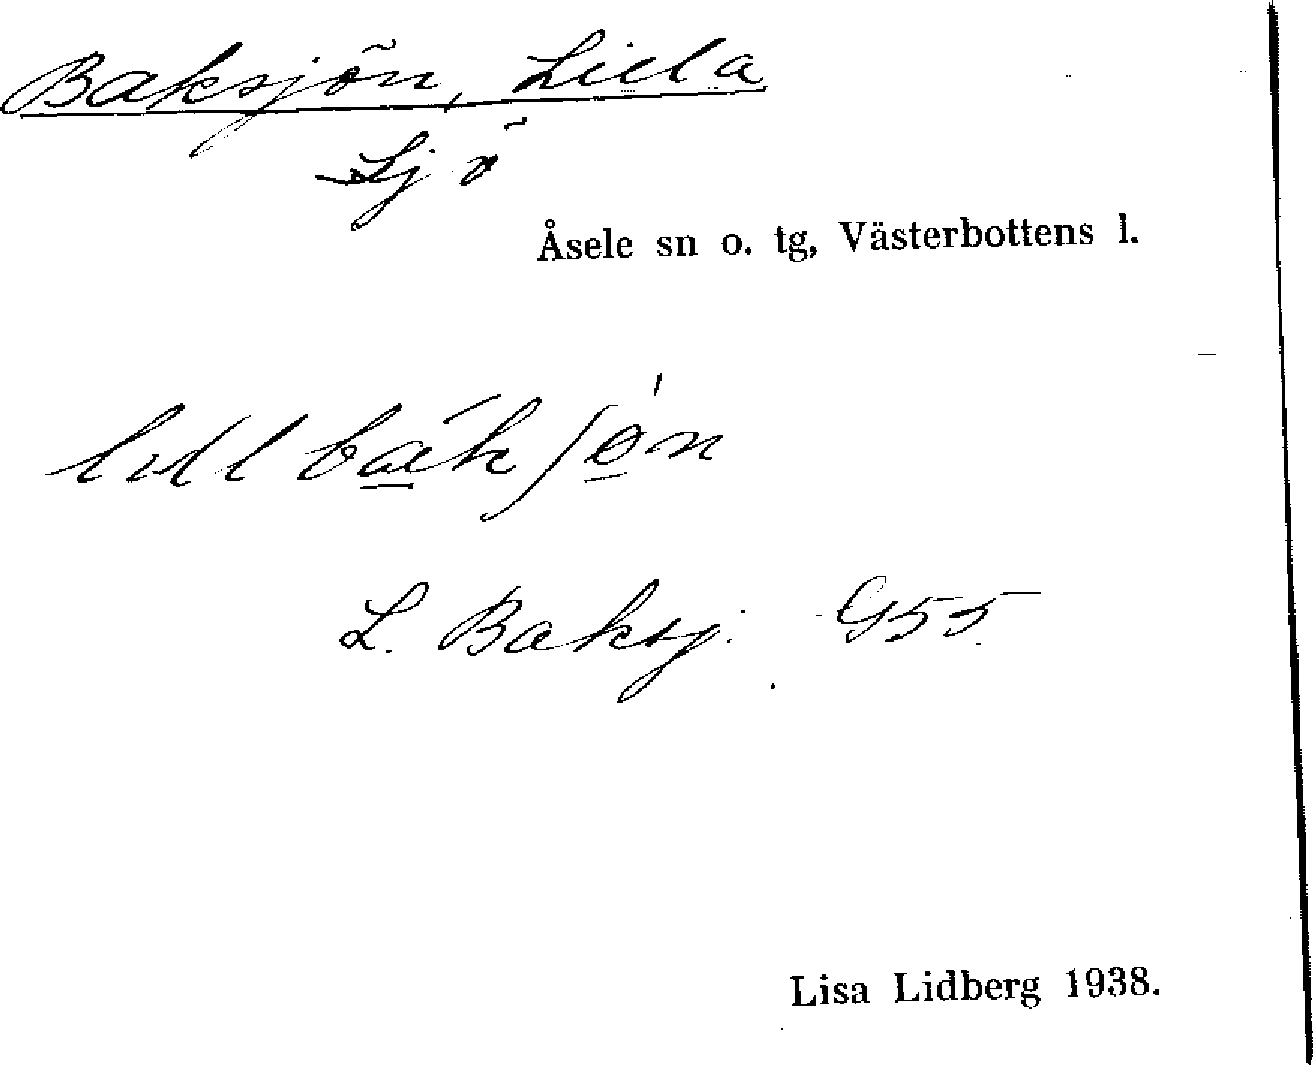 Baksjön, Lilla
Sjö
Åsele sn o. tg, Västerbottens l.
lillbákʃǿn
L. Baksj. G55.
Lisa Lidberg 1938.